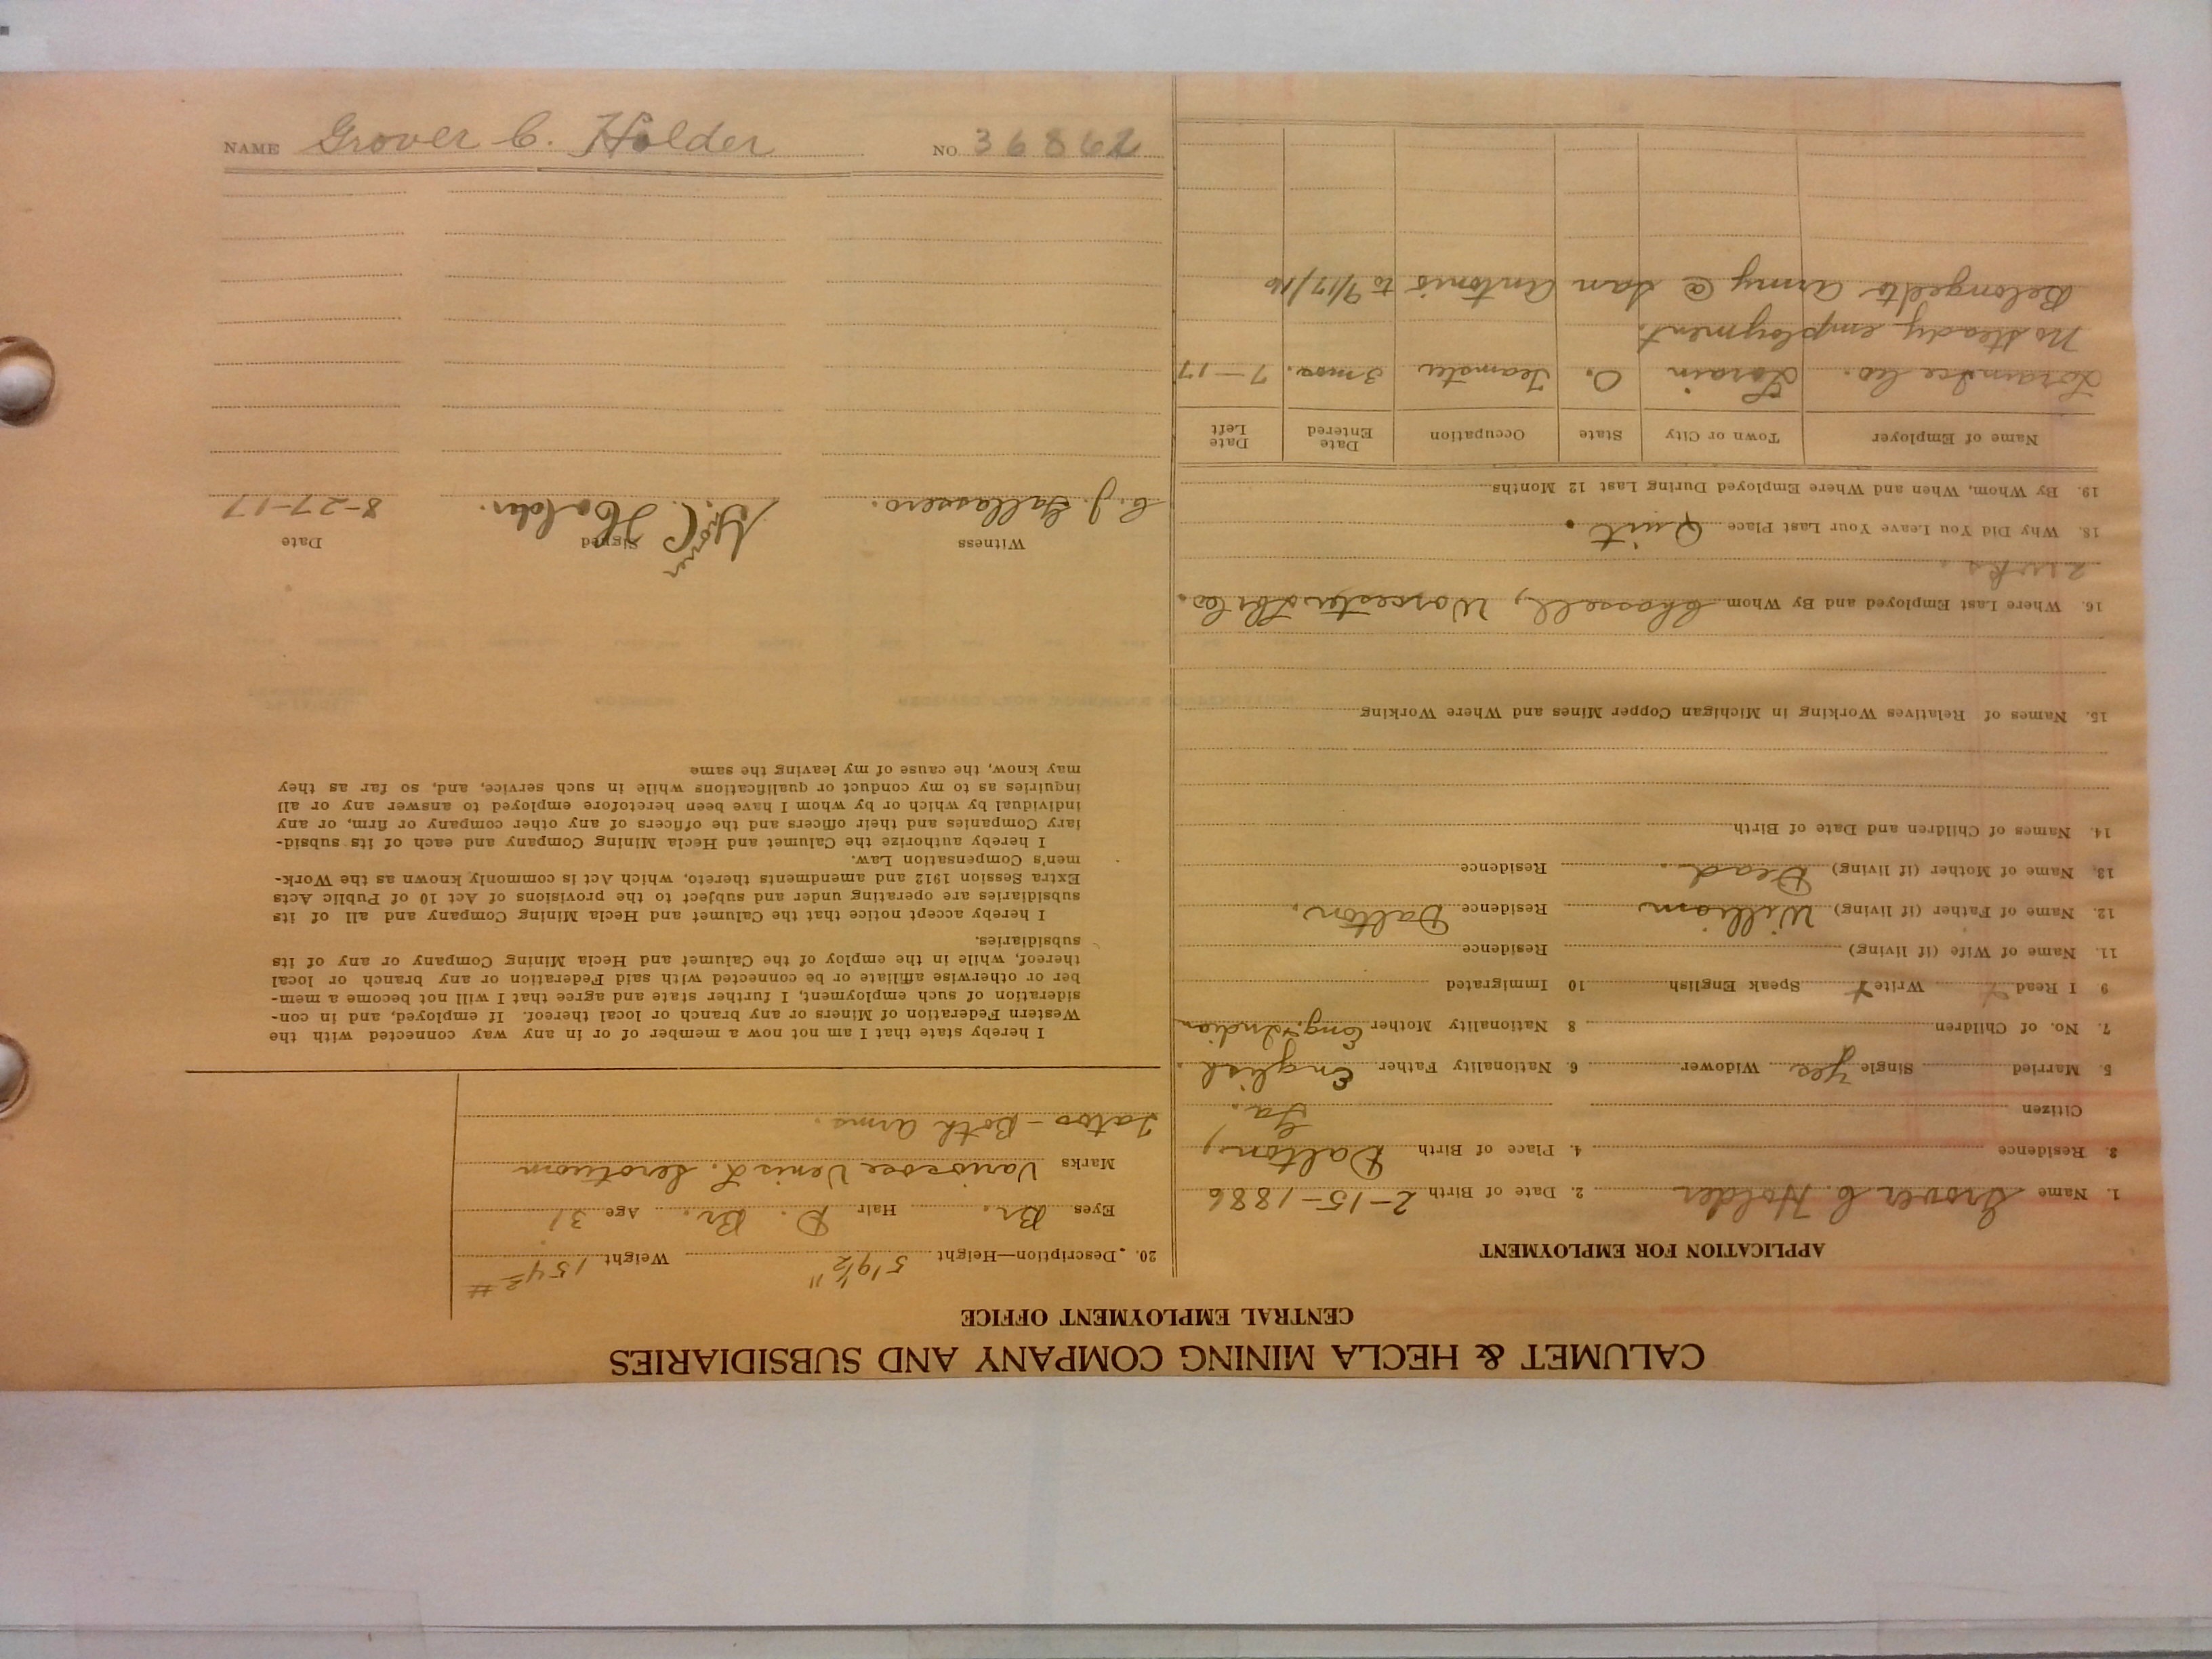 NAME Grover C. Holder NO. 36862
CALUMET & HECLA MINING COMPANY AND SUBSIDIARIES
CENTRAL EMPLOYMENT OFFICE
APPLICATION FOR EMPLOYMENT
1. Name Grover C. Holder 2. Date of Birth 2-15-1886
3. Residence 4. Place of Birth Dalton,
Citizen Ga.
5. Married Single Yes Widower 6. Nationality Father English.
7. No. of Children 8 Nationality Mother Eng. & Indian
9 I Read + Write + Speak English 10 Immigrated
11. Name of Wife (if living) Residence
12. Name of Father (if living) William Residence Dalton.
13. Name of Mother (if living) Dead. Residence
14. Names of Children and Date of Birth
15. Names of Relatives Working in Michigan Copper Mines and Where Working
16. Where Last Employed and By Whom Chassell, Worcester Lbr Co.
2 wks.
18. Why Did You Leave Your Last Place Quit.
19. By Whom, When and Where Employed During Last 12 Months
Name of Employer Town or City State Occupation Date Entered Date Left
Lorain Ice Co. Lorain O. Teamster 3 mos. 7-17
No steady employment.
Belonged to Army @ San Antonio to 9/17/16
20. Description—Height 5' 9 1/2" Weight 154 #
Eyes Br. Hair D. Br. Age 31
Marks Varicose Venis L. Scrotuom
Tatoo - Both arms.
I hereby state that I am not now a member of or in any way connected with the
Western Federation of Miners or any branch or local thereof. If employed, and in con-
sideration of such employment, I further state and agree that I will not become a mem-
ber or otherwise affiliate or be connected with said Federation or any branch or local
thereof, while in the employ of the Calumet and Hecla Mining Company or any of its
subsidiaries.
I hereby accept notice that the Calumet and Hecla Mining Company and all of its
subsidiaries are operating under and subject to the provisions of Act 10 of Public Acts
Extra Session 1912 and amendments thereto, which Act is commonly known as the Work-
men's Compensation Law.
I hereby authorize the Calumet and Hecla Mining Company and each of its subsid-
iary Companies and their officers and the officers of any other company or firm, or any
individual by which or by whom I have been heretofore employed to answer any or all
inquiries as to my conduct or qualifications while in such service, and, so far as they
may know, the cause of my leaving the same
Witness Signed Date
C. J. Grover C. Holder. 8-27-17